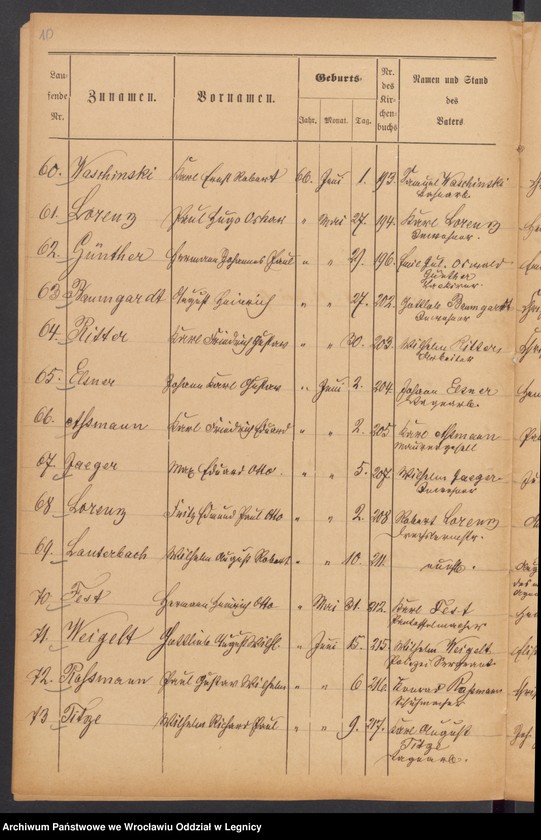 10
Lau-
fende
Nr.
Zunamen.
Vornamen.
Geburts-
Jahr.
Monat.
Tag.
Nr.
des
Kir-
chen-
buchs
Namen und Stand
des
Vaters
60. Waschinski Karl Ernst Robert 66. Juni 1. 193. Samuel Waschinski
61. Lorenz Paul Hugo Oskar " Mai 27. 194. Karl Lorenz
Inwohner.
62. Günther Hermann Johannes Paul " " 29. 196. Emil Jul. Oswald
Günther
63. Baumgardt August Heinrich " " 27. 202. Gottlob Baumgardt
Inwohner
64. Ritter Karl Friedrich Gustav " " 30. 203. Wilhelm Ritter
Arbeiter
65. Elsner Johann Karl Gustav " Juni 2. 204. Johann Elsner
66. Assmann Karl Friedrich Eduard " " 2. 205 Karl Assmann
Maurergesell
67. Jaeger Max Eduard Otto " " 5. 207. Wilhelm Jaeger
Inwohner
68 Lorenz Fritz Edmund Paul Otto " " 2. 208 Robert Lorenz
69. Lauterbach Wilhelm August Robert " " 10. 211.
70. Fest Hermann Heinrich Otto " Mai 31. 212. Karl Fest
71. Weigelt Gottlieb August Wilh. " Juni 15. 215. Wilhelm Weigelt
Polizei Sergeant.
72. Rassmann Paul Gustav Wilhelm " " 6 216. Rassmann
Schuhmacher
73 Titze Wilhelm Richard Paul " " 9. 217. Karl August
Titze
Archiwum Państwowe we Wrocławiu Oddział w Legnicy